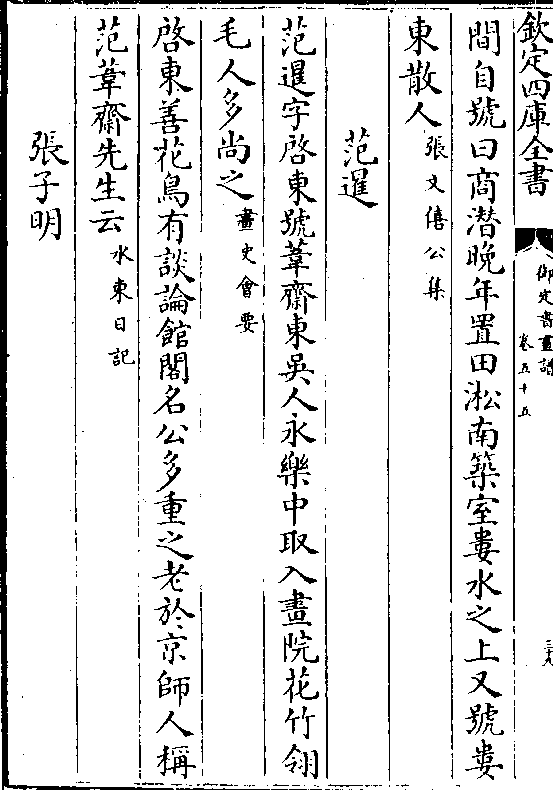 欽定四庫全書
御定書畫譜
卷五十五
間自號曰商潛晚年置田淞南築室婁水之上又號婁
東散人張文僖公集
范暹
范暹字啓東號葦齋東吳人永樂中取入畫院花竹翎
毛人多尚之畫史會要
啓東善花鳥有談論館閣名公多重之老於京師人稱
范葦齋先生云水東日記
張子明